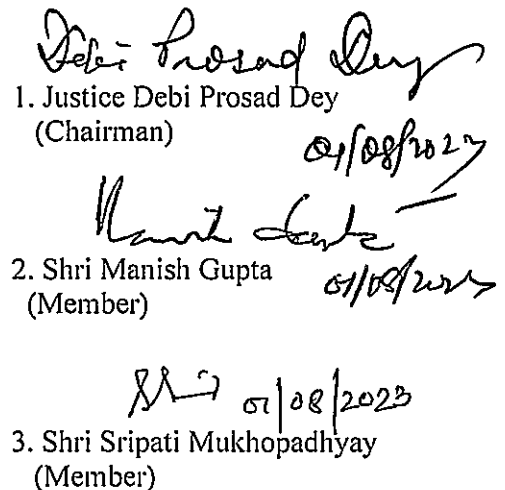 Debi Prosad Dey
1. Justice Debi Prosad Dey
(Chairman)
01/08/2023
Manish Gupta
2. Shri Manish Gupta
01/08/2023
(Member)
01/08/2023
3. Shri Sripati Mukhopadhyay
(Member)